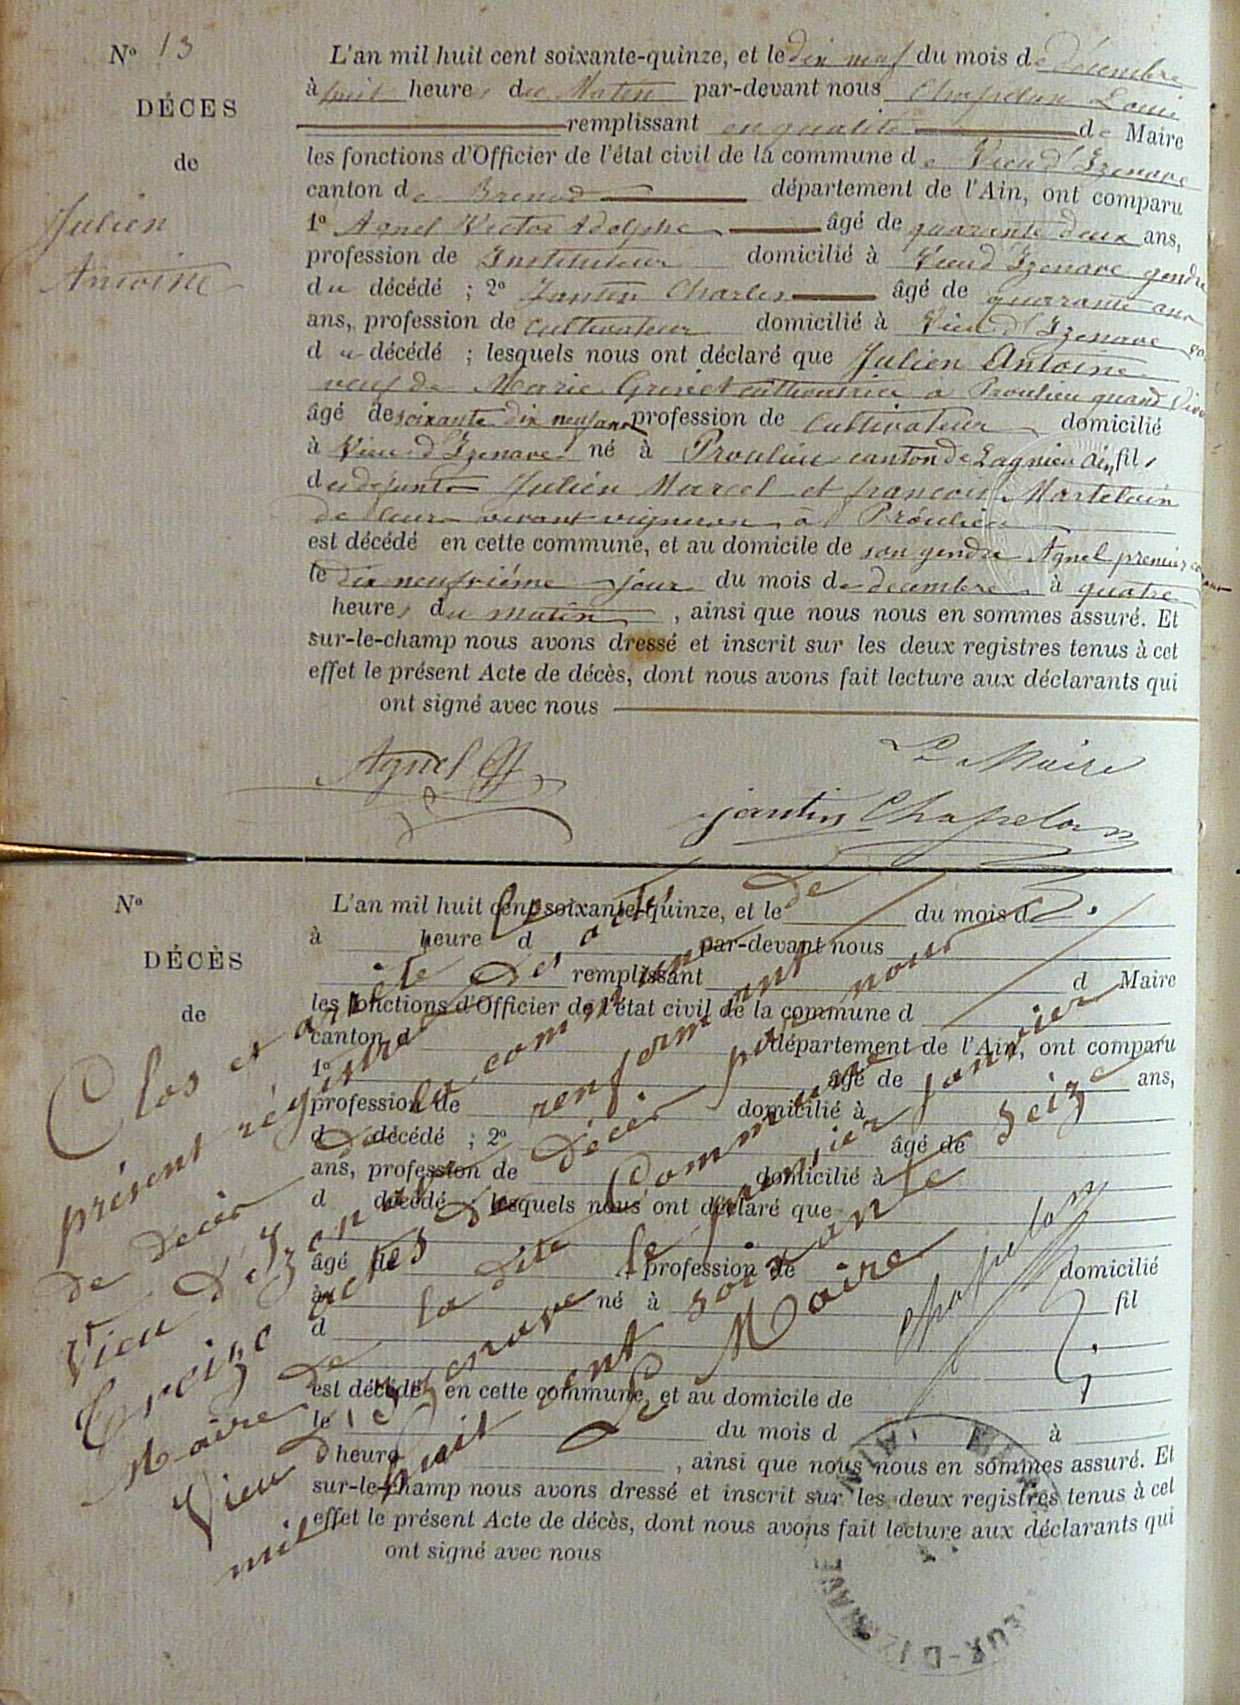 N° 13
DÉCES
de
Julien
Antoine
L'an mil huit cent soixante-quinze, et le dix neuf du mois de décembre
à huit heures du Matin par-devant nous Chapelan Louis
remplissant en qualité de Maire
les fonctions d'Officier de l'état civil de la commune de Vieu d'Izenave
canton de Brenod département de l'Ain, ont comparu
1° Agnel Victor Adolphe âgé de quarante deux ans,
profession de Instituteur domicilié à Vieu d'Izenave gendre
du décédé ; 2° Jantin Charles âgé de quarante ans
ans, profession de cultivateur domicilié à Vieu d'Izenave
d décédé ; lesquels nous ont déclaré que Julien Antoine
veuf de Marie Grinet cultivatrice à Proulieu quand
âgé de soixante dix neuf ans profession de cultivateur domicilié
à Vieu d'Izenave né à Proulieu canton de Lagnieu Ain fils
des défunts Julien Marcel et françois Martelain
de leur vivant vigneron à Proulieu
est décédé en cette commune, et au domicile de son gendre Agnel premier
le dix neufvième jour du mois de decembre à quatre
heures du matin, ainsi que nous nous en sommes assuré. Et
sur-le-champ nous avons dressé et inscrit sur les deux registres tenus à cet
effet le présent Acte de décès, dont nous avons fait lecture aux déclarants qui
ont signé avec nous
Agnel
Le Maire
jantin Chapelan
N°
DÉCÈS
de
L'an mil huit cent soixante-quinze, et le du mois d
à heure d par-devant nous
remplissant d Maire
les fonctions d'Officier de l'état civil de la commune d
canton d département de l'Ain, ont comparu
1° âgé de ans,
profession de domicilié à
d décédé ; 2° âgé de
ans, profession de domicilié à
d décédé ; lesquels nous ont déclaré que
âgé de profession de domicilié
à né à fil
d
est décédé en cette commune, et au domicile de
le du mois d à
heure , ainsi que nous nous en sommes assuré. Et
sur-le-champ nous avons dressé et inscrit sur les deux registres tenus à cet
effet le présent Acte de décès, dont nous avons fait lecture aux déclarants qui
ont signé avec nous
Clos et arrêté le
présent régistre des actes de
de décès de la commune de
Vieu d'Izenave renfermant
treize actes de décès par nous
Maire de la dite commune de
Vieu d'Izenave le premier janvier
mil huit cent soixante seize
Le Maire
Chapelan